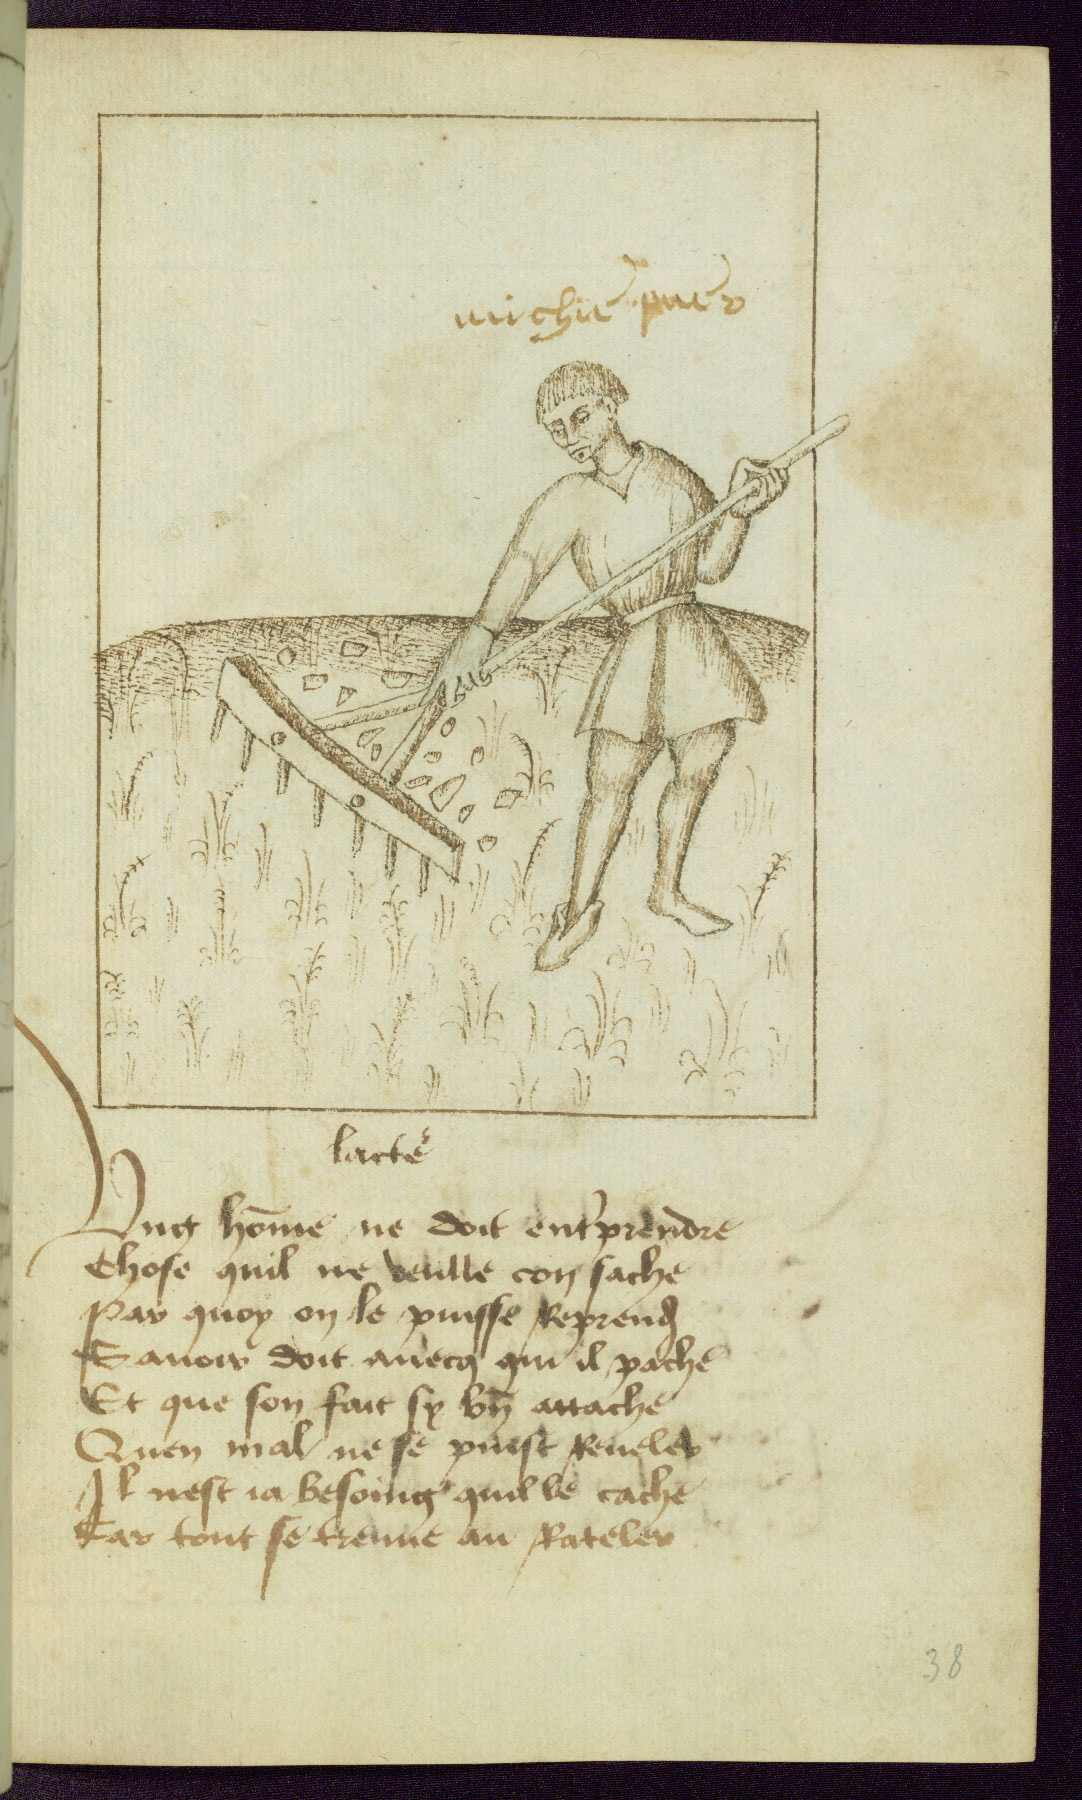 lacteur
Vng home ne doit entprendre
Chose quil ne veulle con sache
Par quoy on le puisse Reprend
Sauoir doit auecq qui il pache
Et que son fait sy bn attache
Quen mal ne se puist Reueler
Il nest ia besoing quil le cache
Car tout se treuue au Rateler
38